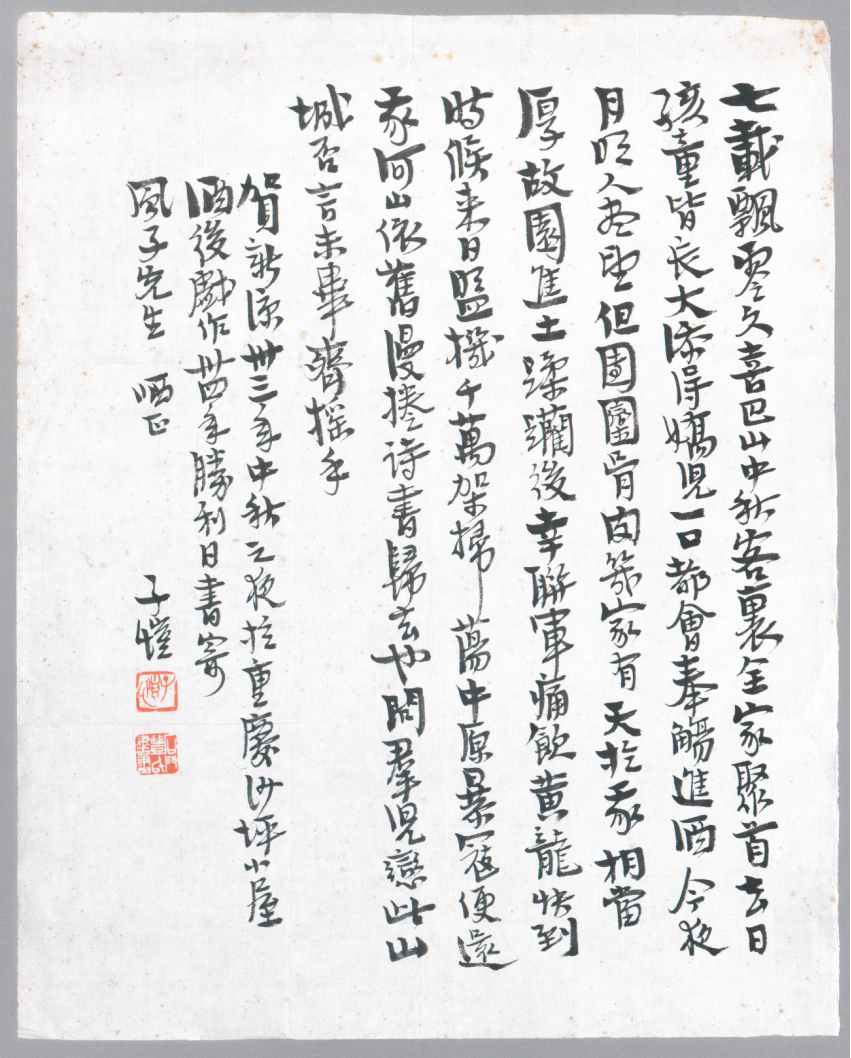 七載飄零久喜巴山中秋客裏全家聚首去日
孩童皆長大添得嬌兒一口都會奉觴進酒今夜
月明人盡望但團圞骨肉幾家有天於我相當
厚故園焦土蹂躪後幸聯軍痛飲黃龍快到
時候來日盟機千萬架掃蕩中原暴寇便還
我河山依舊漫捲詩書歸去也問羣兒戀此山
城否言未畢齊搖手
賀新涼卅三年中秋之夜於重慶沙坪小屋
酒後戲作卅四年勝利日書寄
風子先生 哂正 子愷
子愷